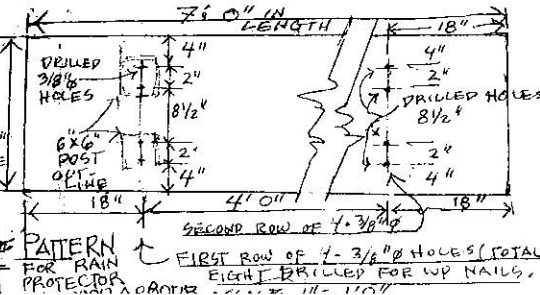 7'-0" IN
LENGTH
18"
DRILLED
3/8"ø
HOLES
4"
2"
8 1/2"
2"
4"
6"X6"
POST
OUT-
LINE
4"
2"
DRILLED HOLES
8 1/2"
2"
4"
18"
4'0"
18"
SECOND ROW OF 4-3/8"ø
PATTERN
FOR RAIN
PROTECTOR
FIRST ROW OF 4-3/8"ø HOLES (TOTAL
EIGHT DRILLED FOR WD NAILS.
SCALE 1"=1'0"